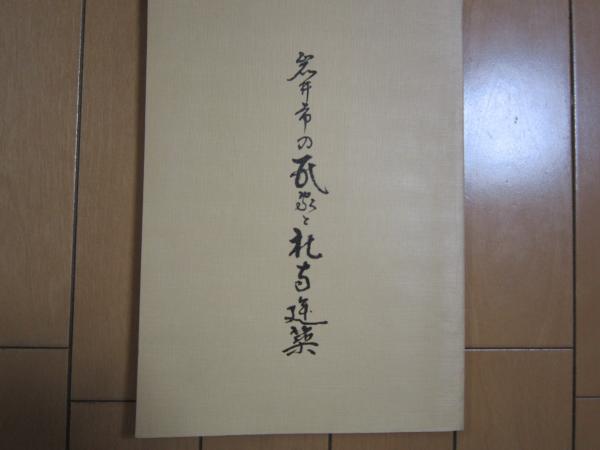 岩井市の民家と社寺建築